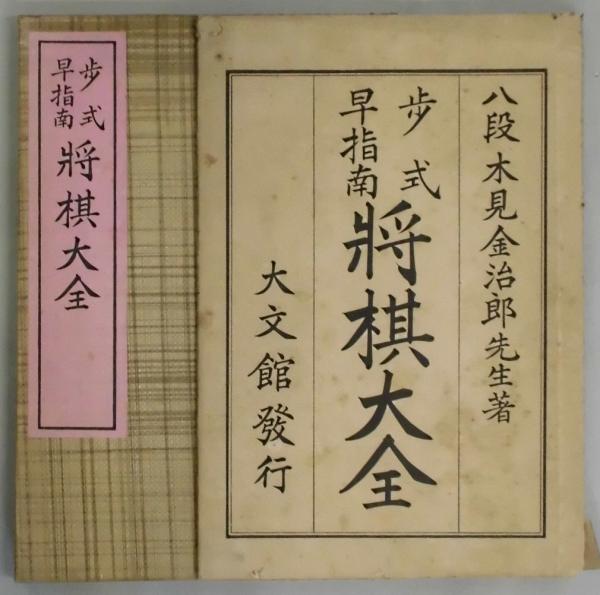 八段 木見金治郎先生著
歩式
早指南
將棋大全
大文館發行
歩式
早指南
將棋大全